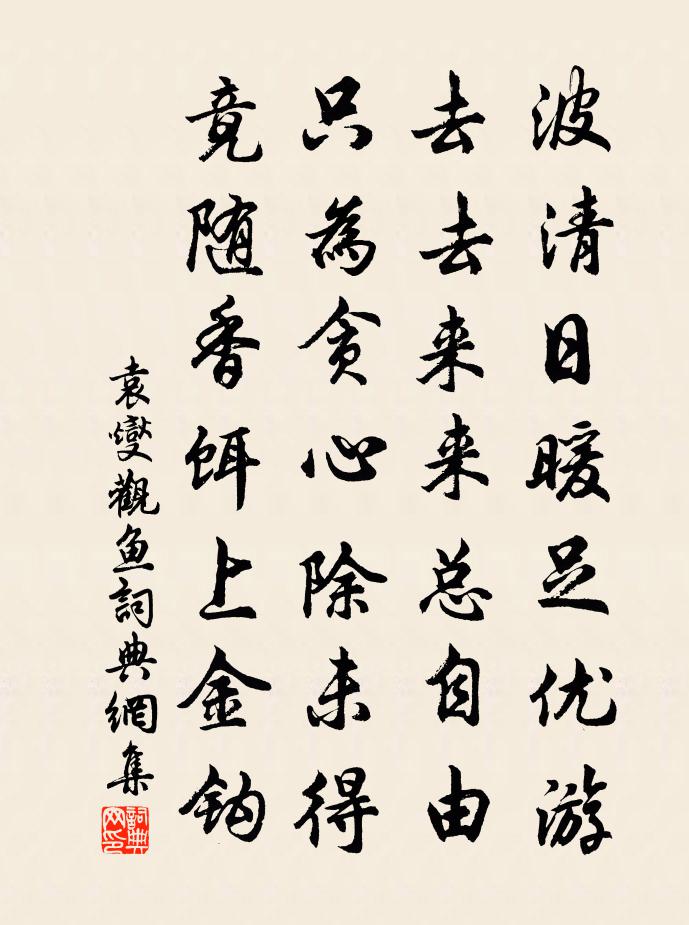 波清日暖足优游
去去来来总自由
只為贪心除未得
竟随香饵上金钩
袁燮觀鱼詞典網集
詞典
网印